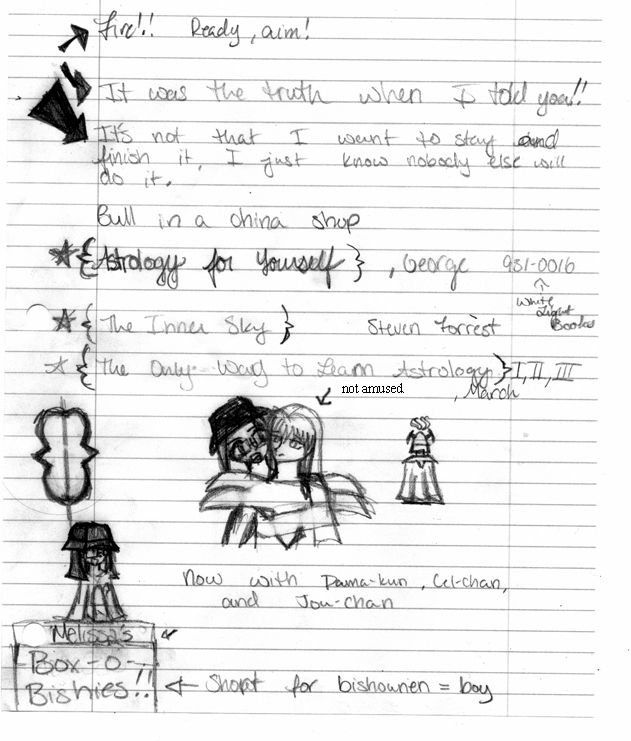 Fire!! Ready, aim!
It was the truth when I told you!!
It's not that I want to stay and
finish it, I just know nobody else will
do it.
Bull in a china shop
{Astrology for Yourself}, George 931-0016
White
Light
Books
{The Inner Sky} Steven Forrest
{The Only Way to Learn Astrology} I, II, III
, March
not amused
Now with Dama-kun, Cel-chan,
and Jou-chan
Melissa's
Box-O-
Bishies!!
Short for bishounen = boy